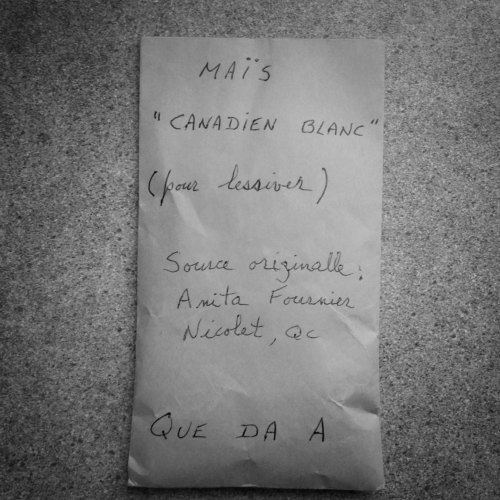 MAÏS
"CANADIEN BLANC"
(pour lessiver)
Source originalle:
Anita Fournier
Nicolet, Qc
QUE DA A